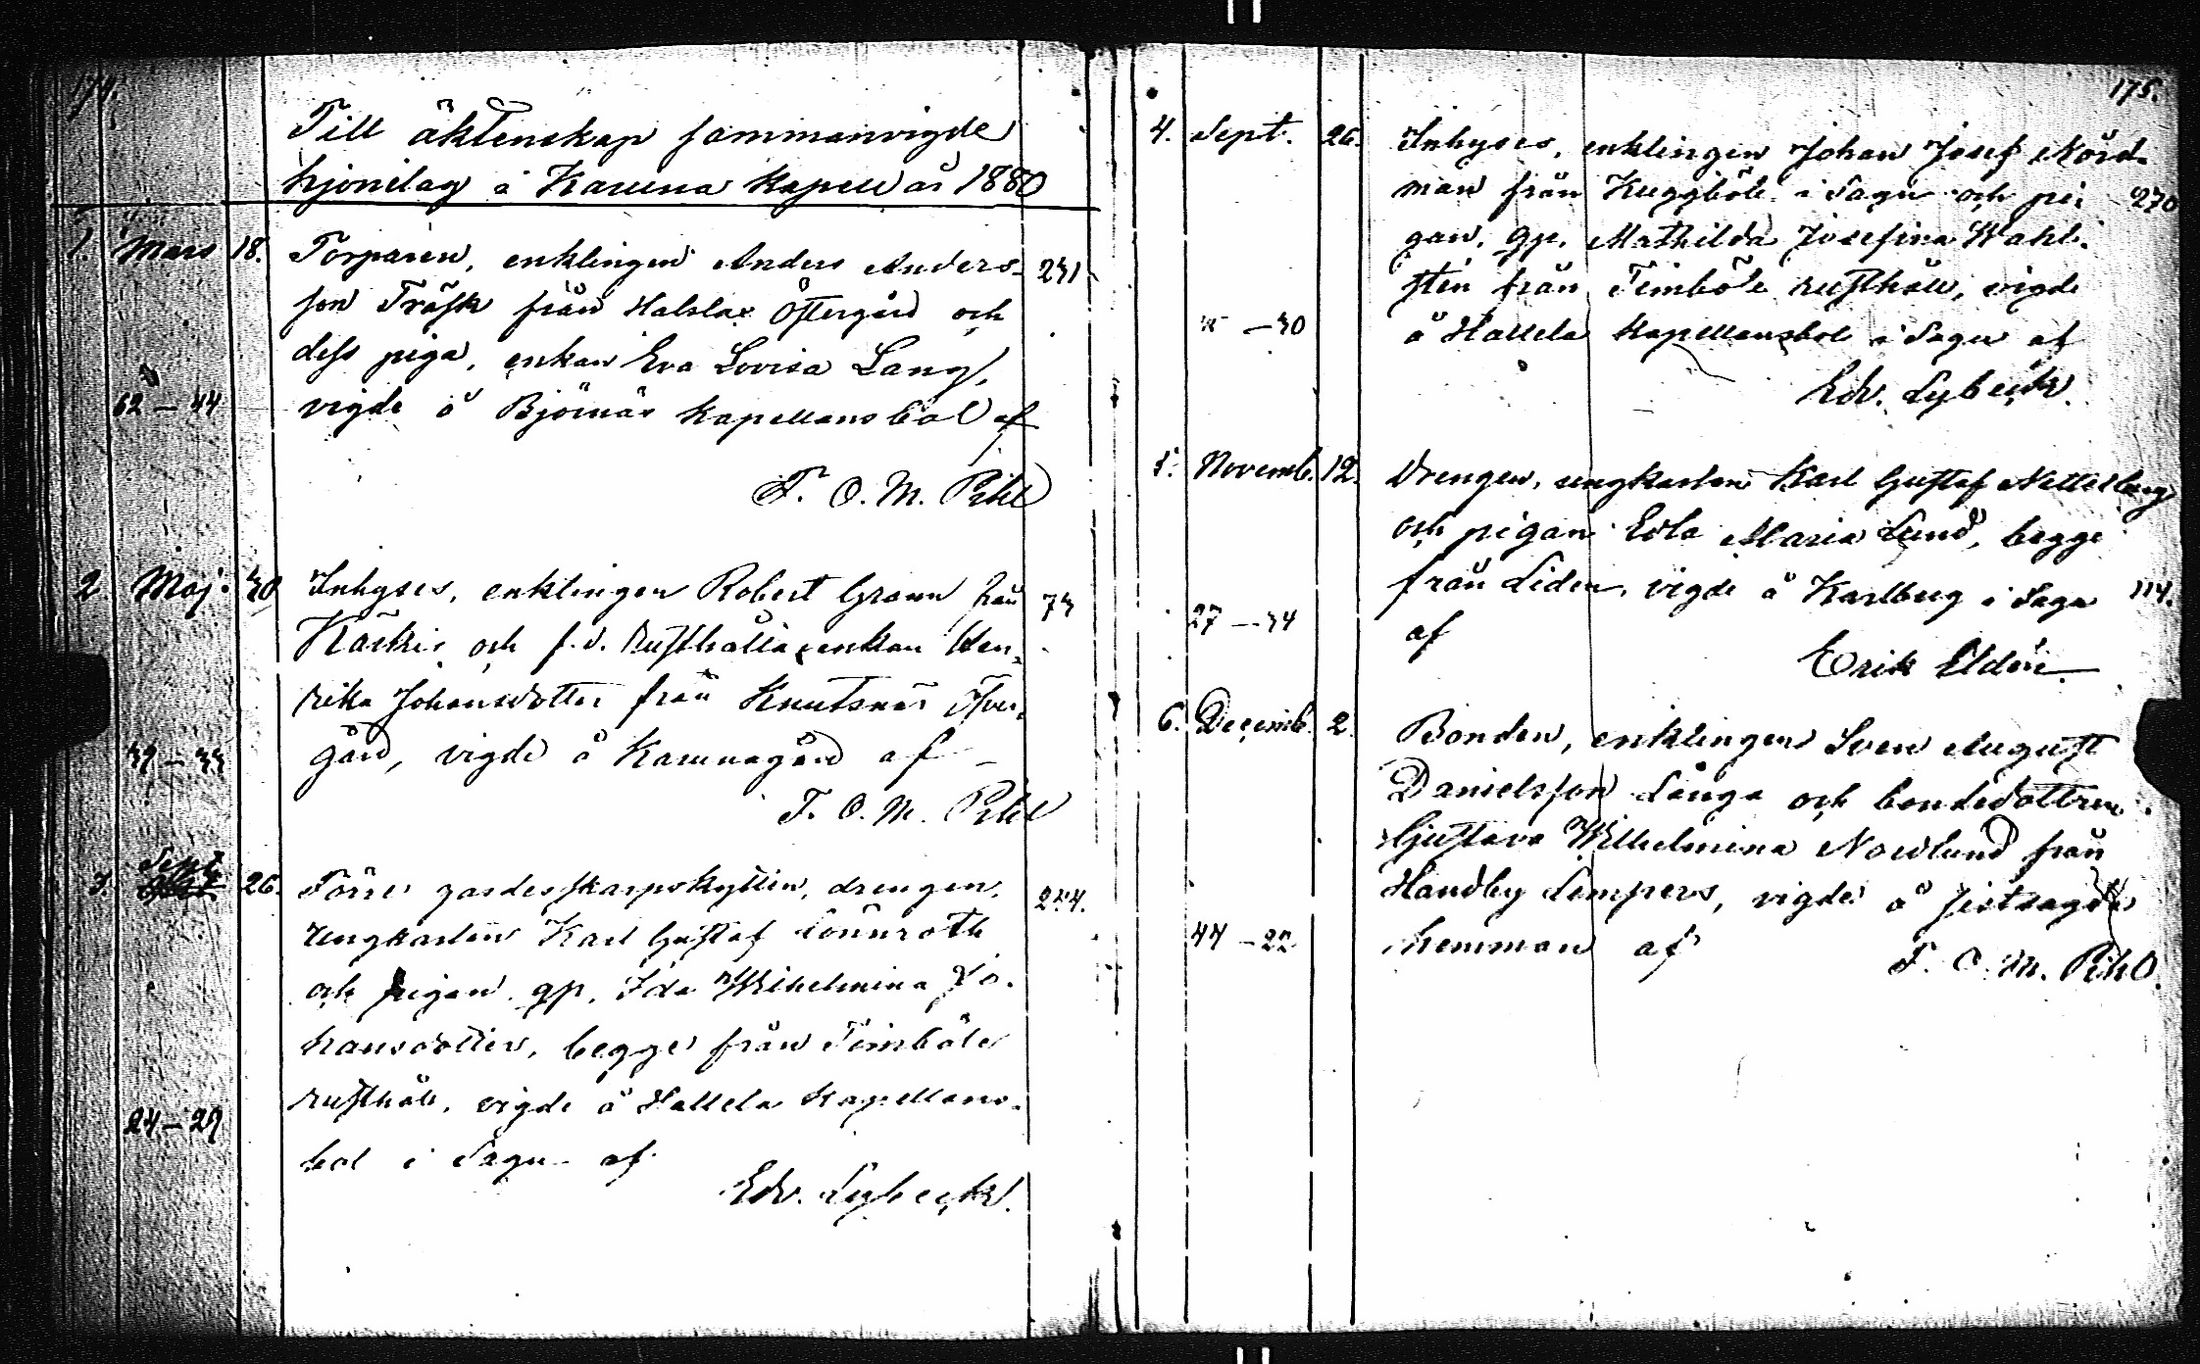 174.
Till äktenskap sammanvigde
hjonelag i Karuna Kapell år 1880
1. Mars 18. Torparen, enklingen Anders Anders- 231
son Träsk från Halslax Östergård och
dess piga, enkan Eva Lovisa Lang,
62 – 44 vigde å Björnäs Kapellansbol af
F. O. M. Pihl
2 Maj 30 Inhyses, enklingen Robert Grann från 73
Käskis och f. d. rusthålls enkan Hen-
rika Johansdotter från Knutsnäs Öfver-
39 – 33 gård, vigde å Karunagård af
F. O. M. Pihl
3. Sept. 26. Förre gardesskarpskytten, drengen,
ungkarlen Karl Gustaf Lönnroth
och pigan, qp. Ida Wilhelmina Jo-
hansdotter, begge från Timböle
rusthåll, vigde å Hallela Kapellans-
24 – 29
bol i Sagu af
Edv. Lybeck.
175.
4. Sept. 26. Inhyses, enklingen Johan Josef Nord-
man från Kuggböle i Sagu och pi- 270
gan, qp. Mathilda Josefina Wahl-
stén från Timböle rusthåll, vigde
– 30 å Hallela Kapellansbol i Sagu af
Edv. Lybeck.
5. Novemb. 12. Drengen, ungkarlen Karl Gustaf Nettelberg
och pigan Edla Maria Lund, begge
från Liden, vigde å Karlberg i Sagu 114.
27 – 34 af
Erik Eldén
6. Decemb. 2. Bonden, enklingen Sven August
Danielsson Långa och bondedottren
Gustava Wilhelmina Nordlund från
Handby Lempers, vigde å
44 – 22 hemman af
F. O. M. Pihl.